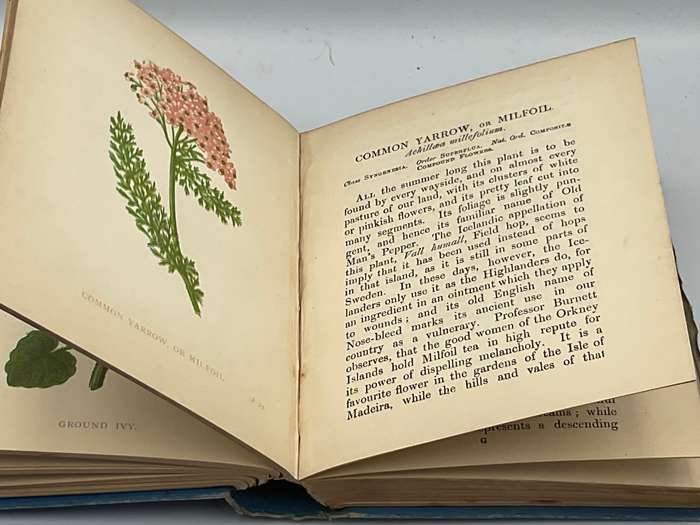 COMMON YARROW, OR MILFOIL.
GROUND IVY.
COMMON YARROW, OR MILFOIL.
Achillæa millefolium.
Class SYNGENESIA. Order SUPERFLUA. Nat. Ord. COMPOSITÆ
COMPOUND FLOWERS.
ALL the summer long this plant is to be
found by every wayside, and on almost every
pasture of our land, with its clusters of white
or pinkish flowers, and its pretty leaf cut into
many segments. Its foliage is slightly pun-
gent, and hence its familiar name of Old
Man's Pepper. The Icelandic appellation of
this plant, Vall humall, Field hop, seems to
imply that it has been used instead of hops
in that island, as it is still in some parts of
Sweden. In these days, however, the Ice-
landers only use it as the Highlanders do, for
an ingredient in an ointment which they apply
to wounds; and its old English name of
Nose-bleed marks its ancient use in our
country as a vulnerary. Professor Burnett
observes, that the good women of the Orkney
Islands hold Milfoil tea in high repute for
its power of dispelling melancholy. It is a
favourite flower in the gardens of the Isle of
Madeira, while the hills and vales of that
; while
presents a descending
G